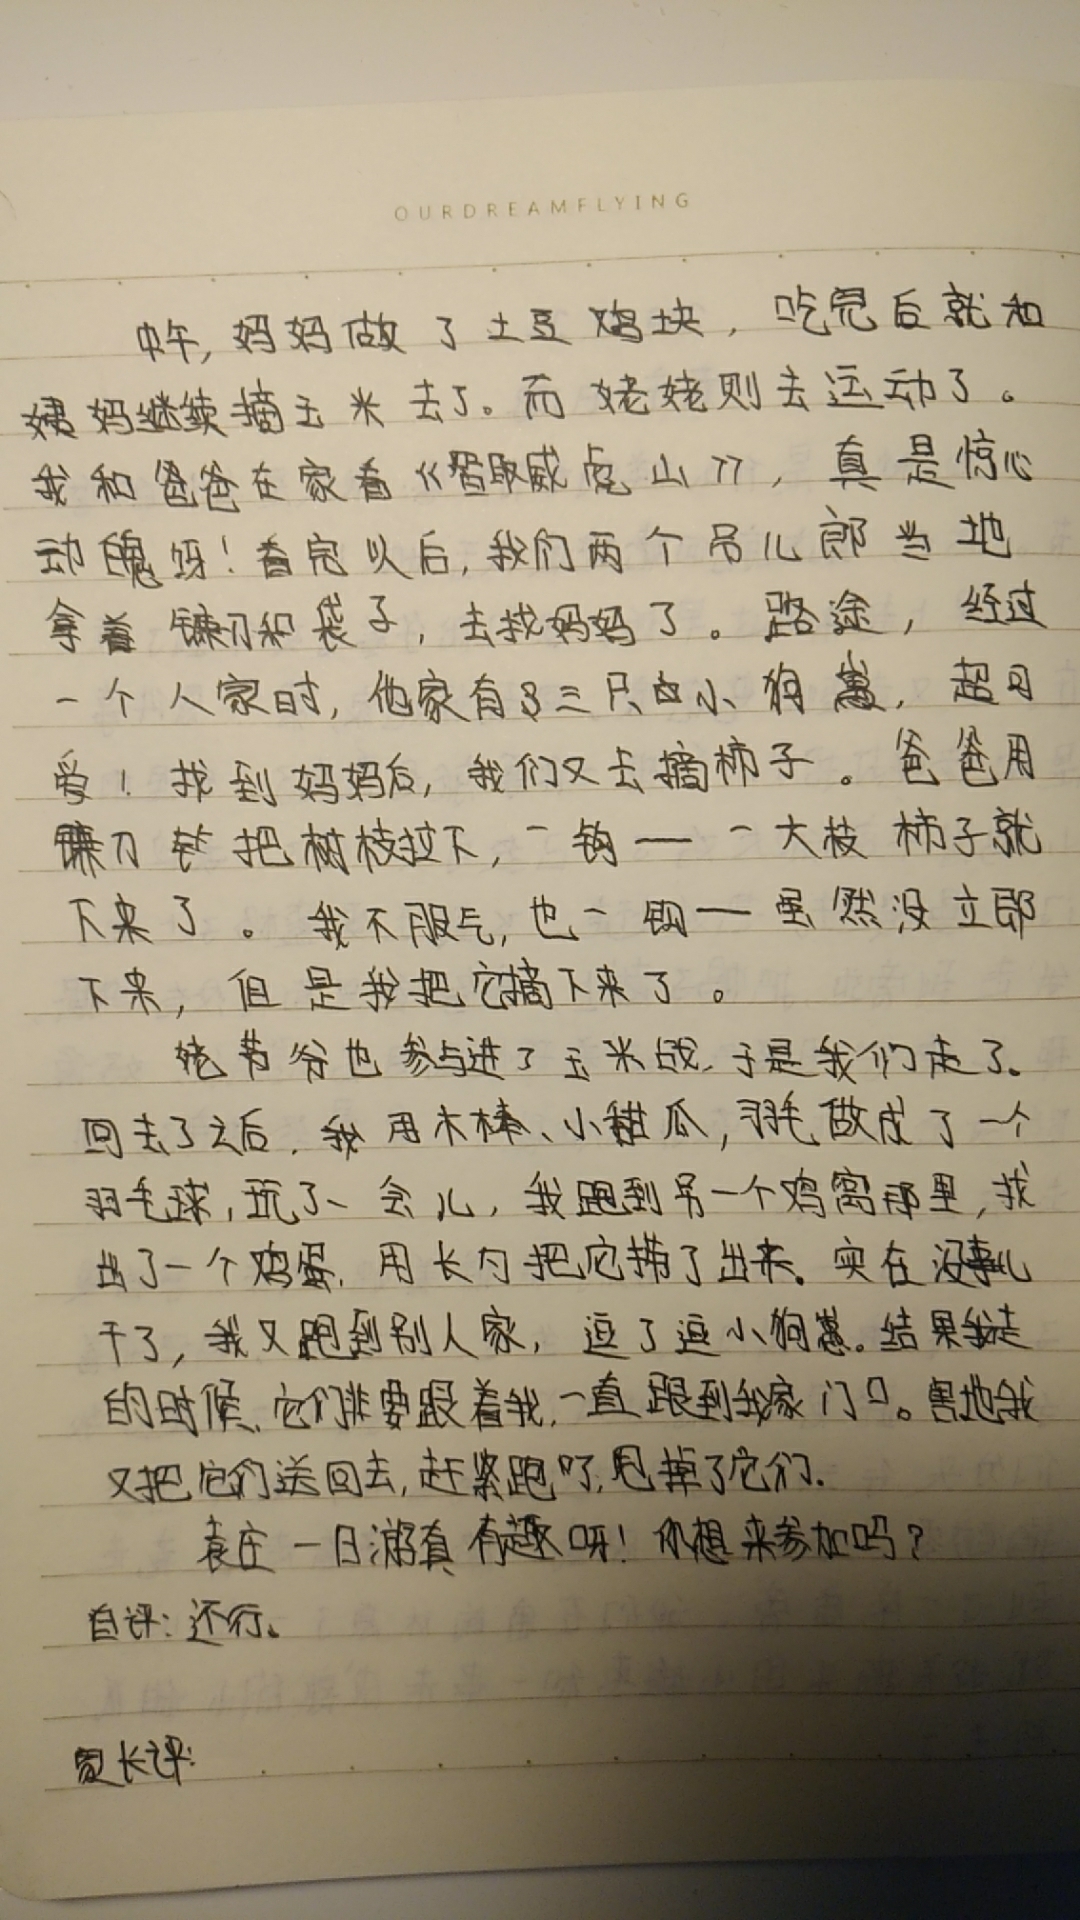 OURDREAMFLYING
中午,妈妈做了土豆鸡块,吃完后就和
姨妈继续摘玉米去了。而姥姥则去运动了。
我和爸爸在家看《智取威虎山》,真是惊心
动魄呀!看完以后,我们两个吊儿郎当地
拿着镰刀和袋子,去找妈妈了。路途,经过
一个人家时,他家有三只小狗崽,超可
爱!找到妈妈后,我们又去摘柿子。爸爸用
镰刀把树枝拉下,一钩——一大枝柿子就
下来了。我不服气,也一钩——虽然没立即
下来,但是我把它摘下来了。
姥爷也参与进了玉米战,于是我们走了。
回去了之后,我用木棒、小甜瓜,羽毛做成了一个
羽毛球,玩了一会儿,我跑到另一个鸡窝那里,找
出了一个鸡蛋,用长勺把它捞了出来。实在没事儿
干了,我又跑到别人家,逗了逗小狗崽。结果我走
的时候,它们非要跟着我,一直跟到我家门口。害地我
又把它们送回去,赶紧跑了,甩掉了它们.
袁庄一日游真有趣呀!你想来参加吗?
自评:还行。
家长评: